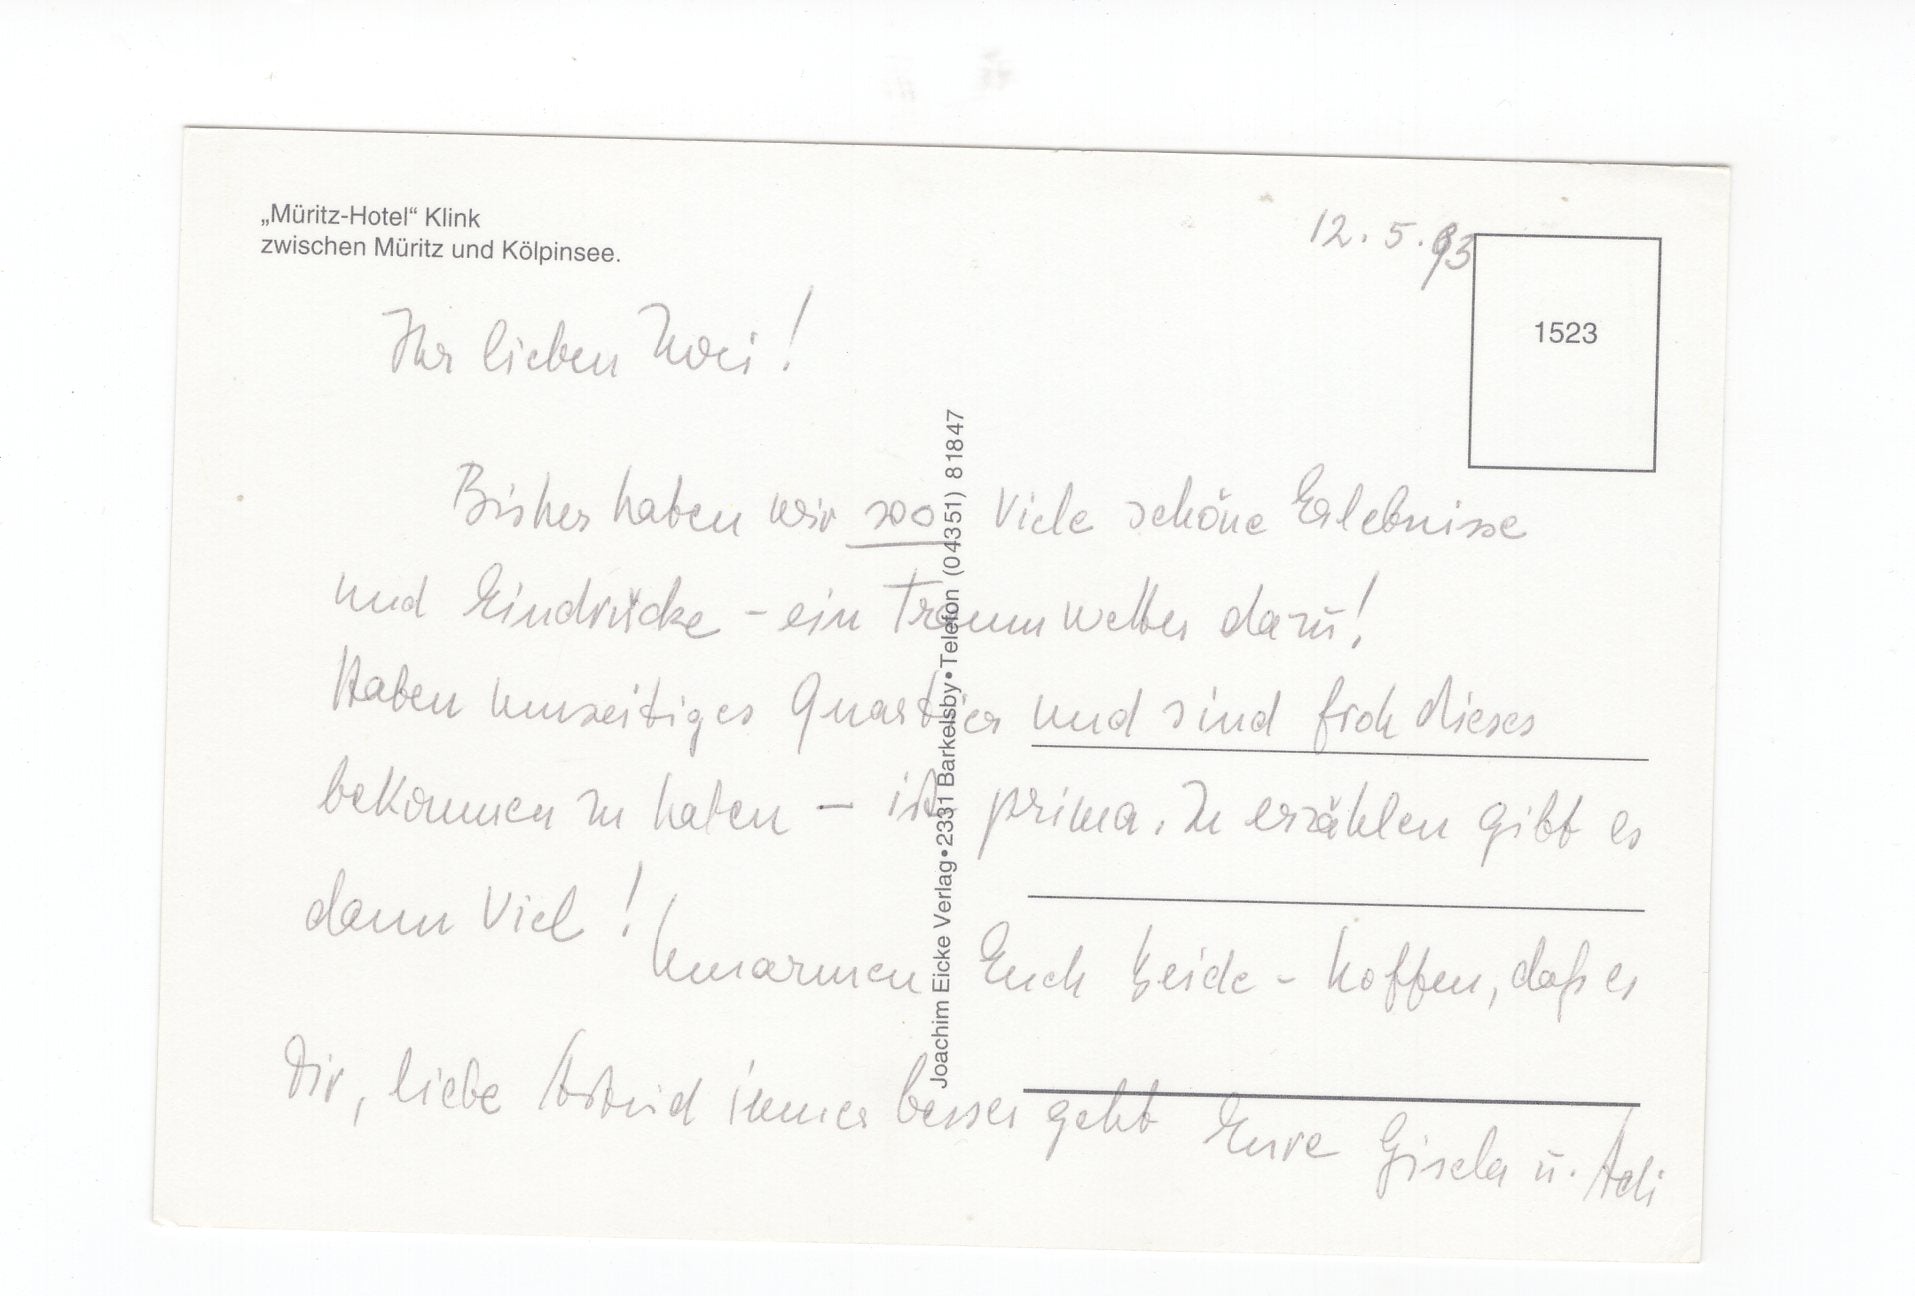 „Müritz-Hotel“ Klink
zwischen Müritz und Kölpinsee.
12.5.93
1523
Ihr lieben Zwei!
Bisher haben wir soo viele schöne Erlebnisse
und Eindrücke – ein Traumwetter dazu!
Haben Quartier und sind froh dieses
bekommen zu haben – ist prima. Zu erzählen gibt es
dann viel!
Umarmen Euch beide – hoffen, daß es
Dir, liebe Astrid immer besser geht Eure Gisela u. Adi
Joachim Eicke Verlag • 2331 Barkelsby • Telefon (04351) 81847